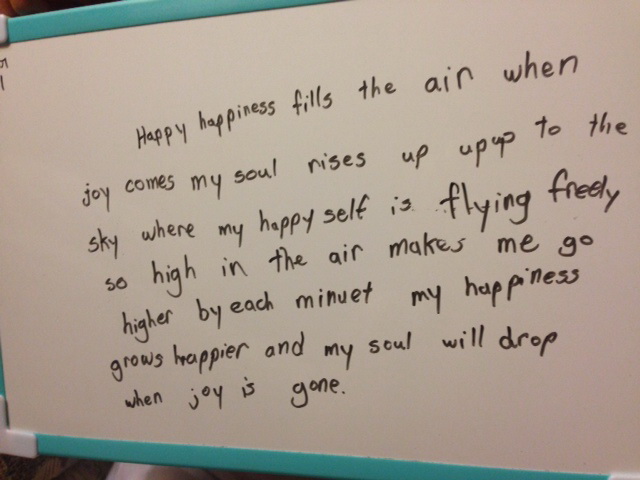 Happy happiness fills the air when
joy comes my soul rises up upup to the
sky where my happy self is flying freely
so high in the air makes me go
higher by each minuet my happiness
grows happier and my soul will drop
when joy is gone.